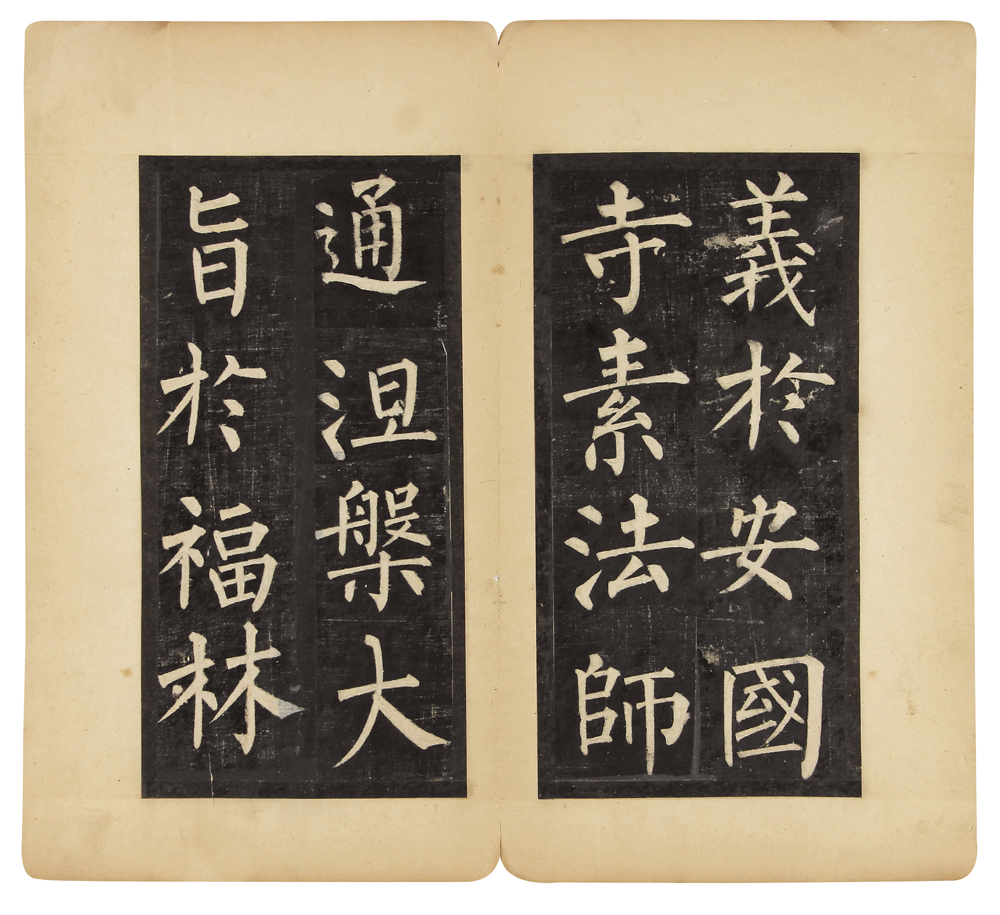 義於安國
寺素法師
通涅槃大
旨於福林